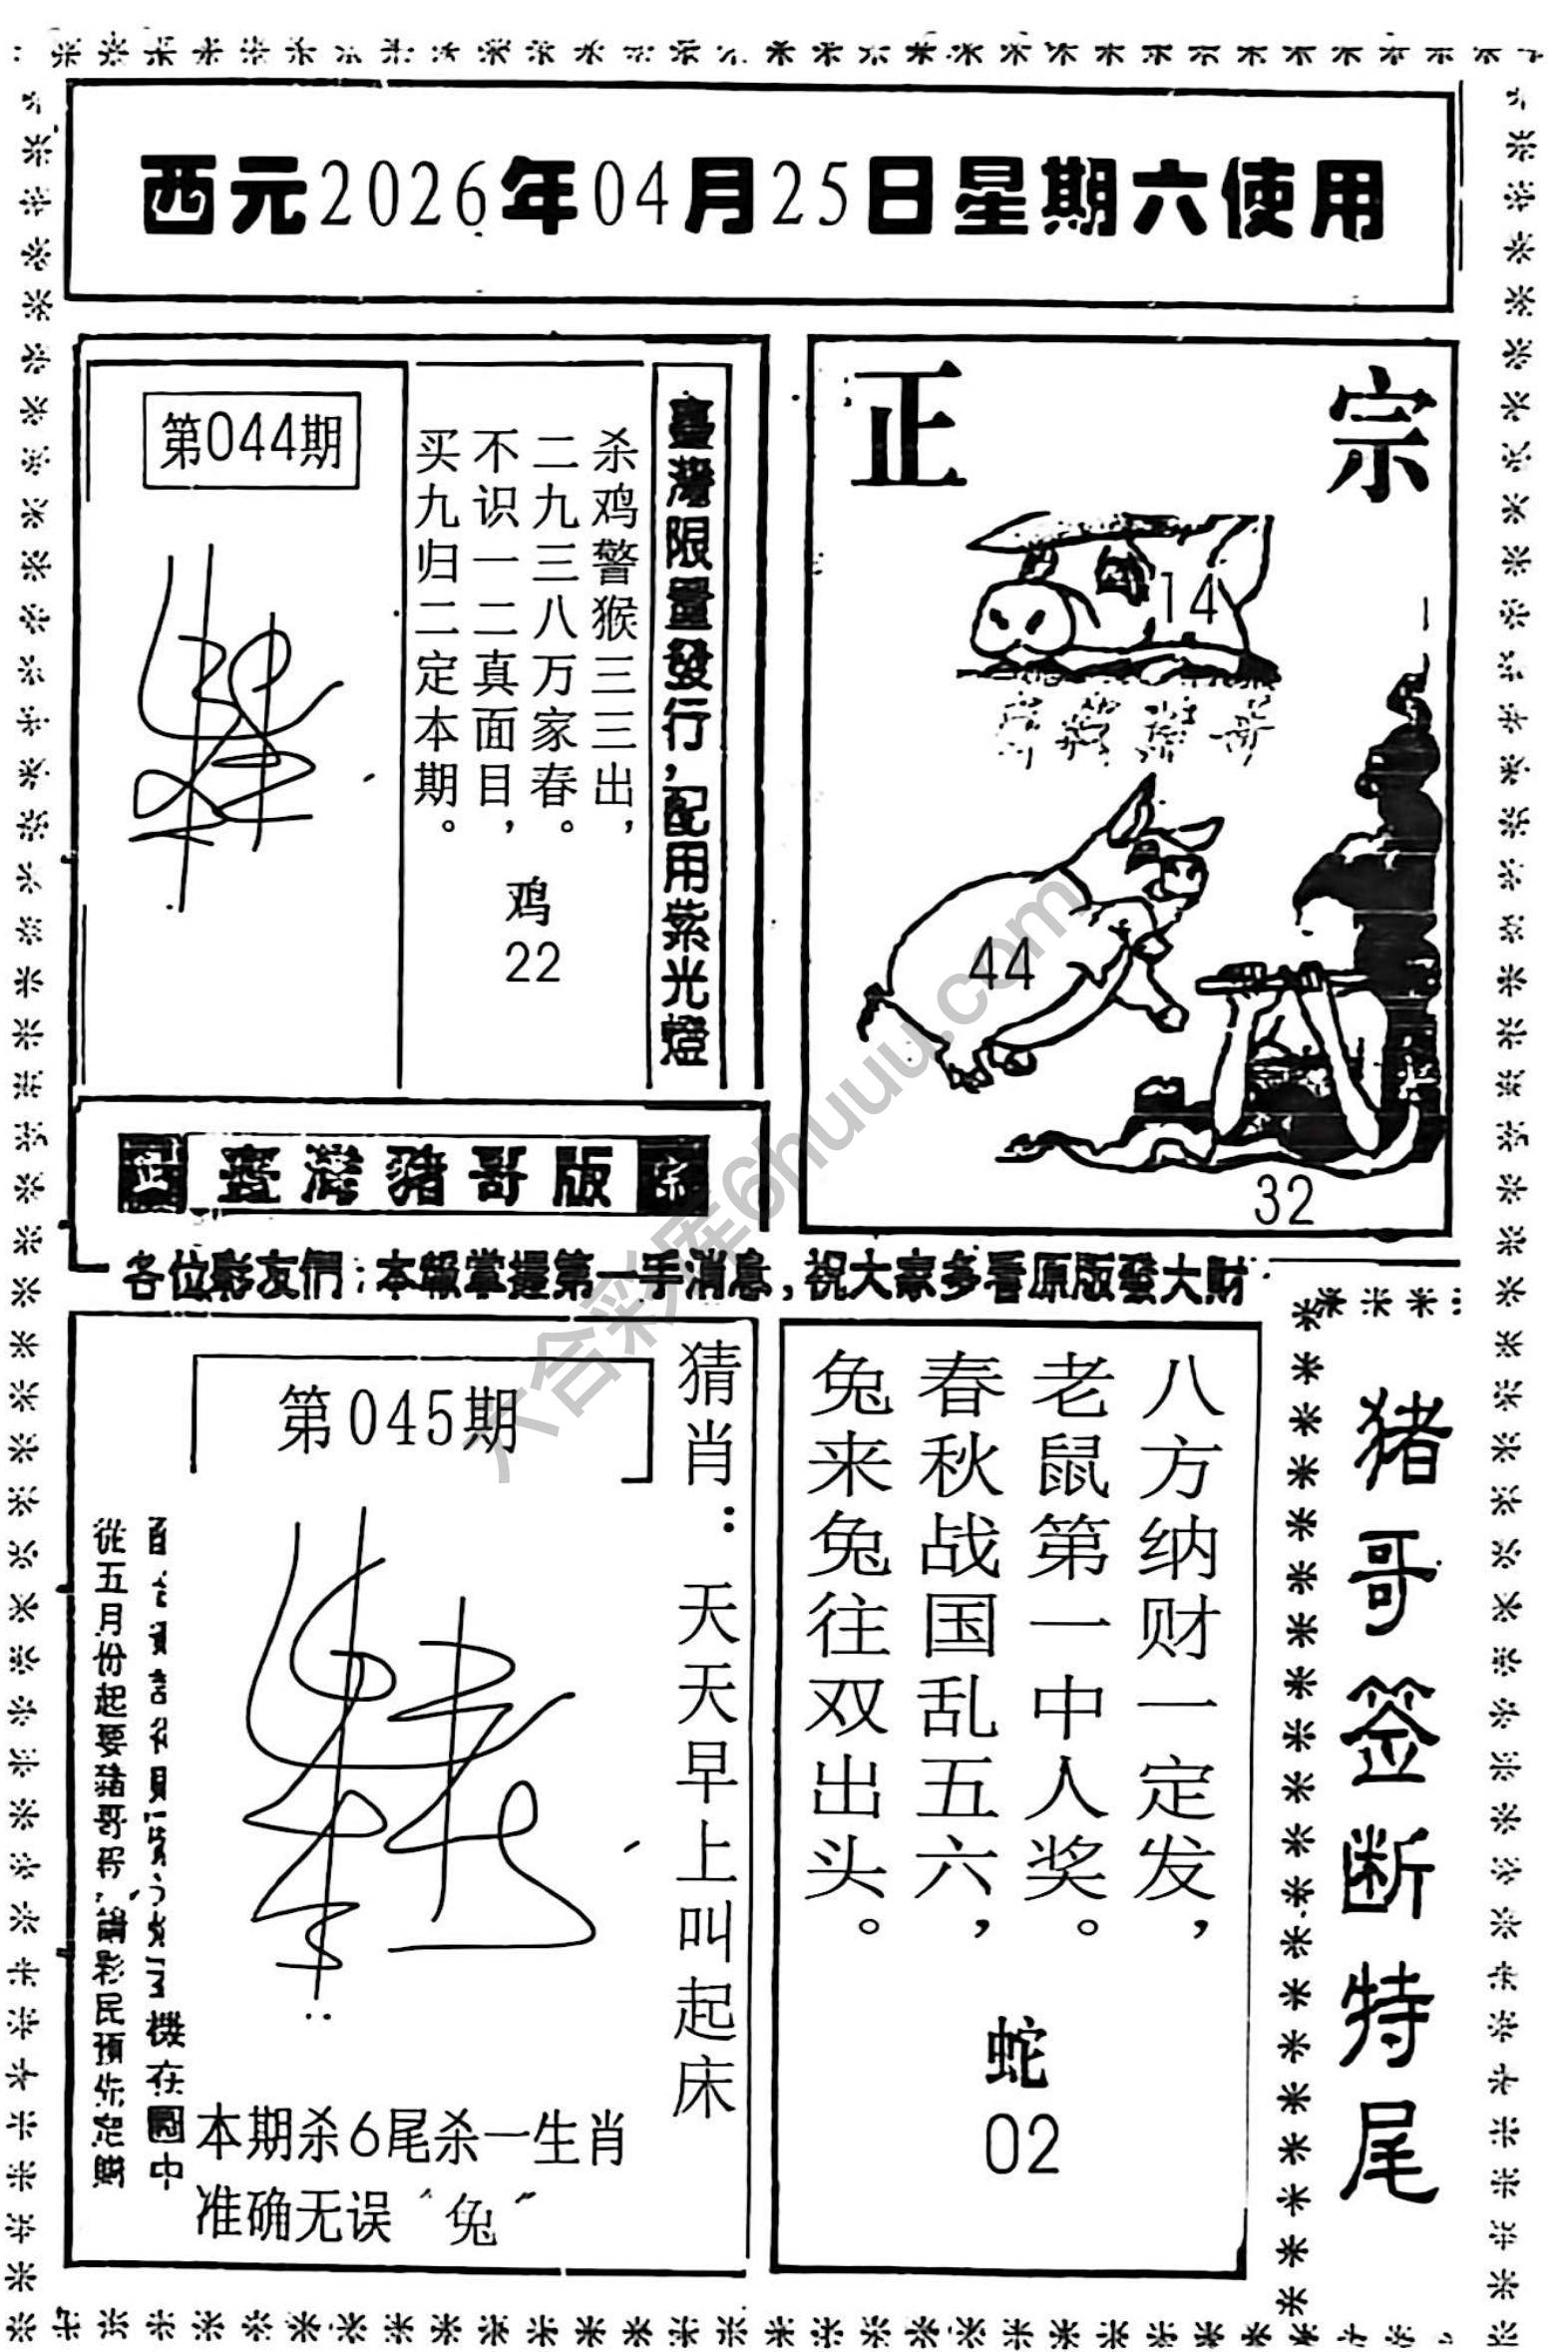 西元2026年04月25日星期六使用
第044期
杀鸡警猴三三出，
二九三八万家春。
不识一二真面目，
买九归二定本期。
鸡
22
臺灣限量發行，配用紫光燈
正宗
14
44
32
臺灣豬哥版
各位彩友們：本報掌握第一手消息，祝大家多看原版發大財
第045期
猜肖：天天早上叫起床
從五月份起要豬哥
彩民預先定購
機在圖中
本期杀6尾杀一生肖
准确无误“兔”
八方纳财一定发，
老鼠第一中人奖。
春秋战国乱五六，
兔来兔往双出头。
蛇
02
猪哥签断特尾
六合彩库6huuu.com